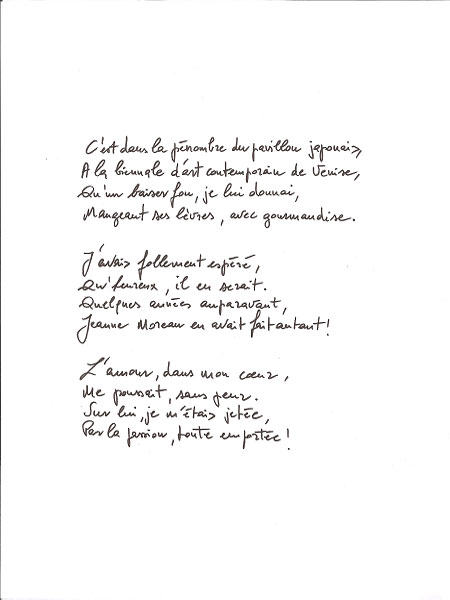 C'est dans la pénombre du pavillon japonais,
A la biennale d'art contemporain de Venise,
Qu'un baiser fou, je lui donnai,
Mangeant ses lèvres, avec gourmandise.
J'avais follement espéré,
Qu'heureux, il en serait.
Quelques années auparavant,
Jeanne Moreau en avait fait autant!
L'amour, dans mon cœur,
Me poussait, sans peur.
Sur lui, je m'étais jetée,
Par la passion, toute emportée!